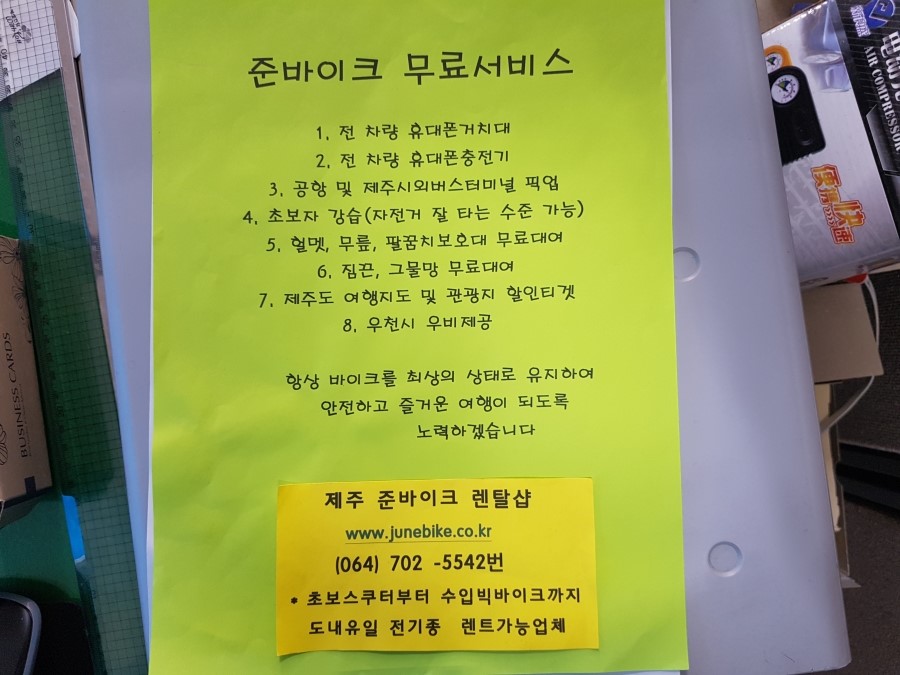 준바이크 무료서비스
1. 전 차량 휴대폰거치대
2. 전 차량 휴대폰충전기
3. 공항 및 제주시외버스터미널 픽업
4. 초보자 강습(자전거 잘 타는 수준 가능)
5. 헬멧, 무릎, 팔꿈치보호대 무료대여
6. 짐끈, 그물망 무료대여
7. 제주도 여행지도 및 관광지 할인티켓
8. 우천시 우비제공
항상 바이크를 최상의 상태로 유지하여
안전하고 즐거운 여행이 되도록
노력하겠습니다
제주 준바이크 렌탈샵
www.junebike.co.kr
(064) 702 -5542번
* 초보스쿠터부터 수입빅바이크까지
도내유일 전기종 렌트가능업체
BUSINESS CARDS
AIR COMPRESSOR